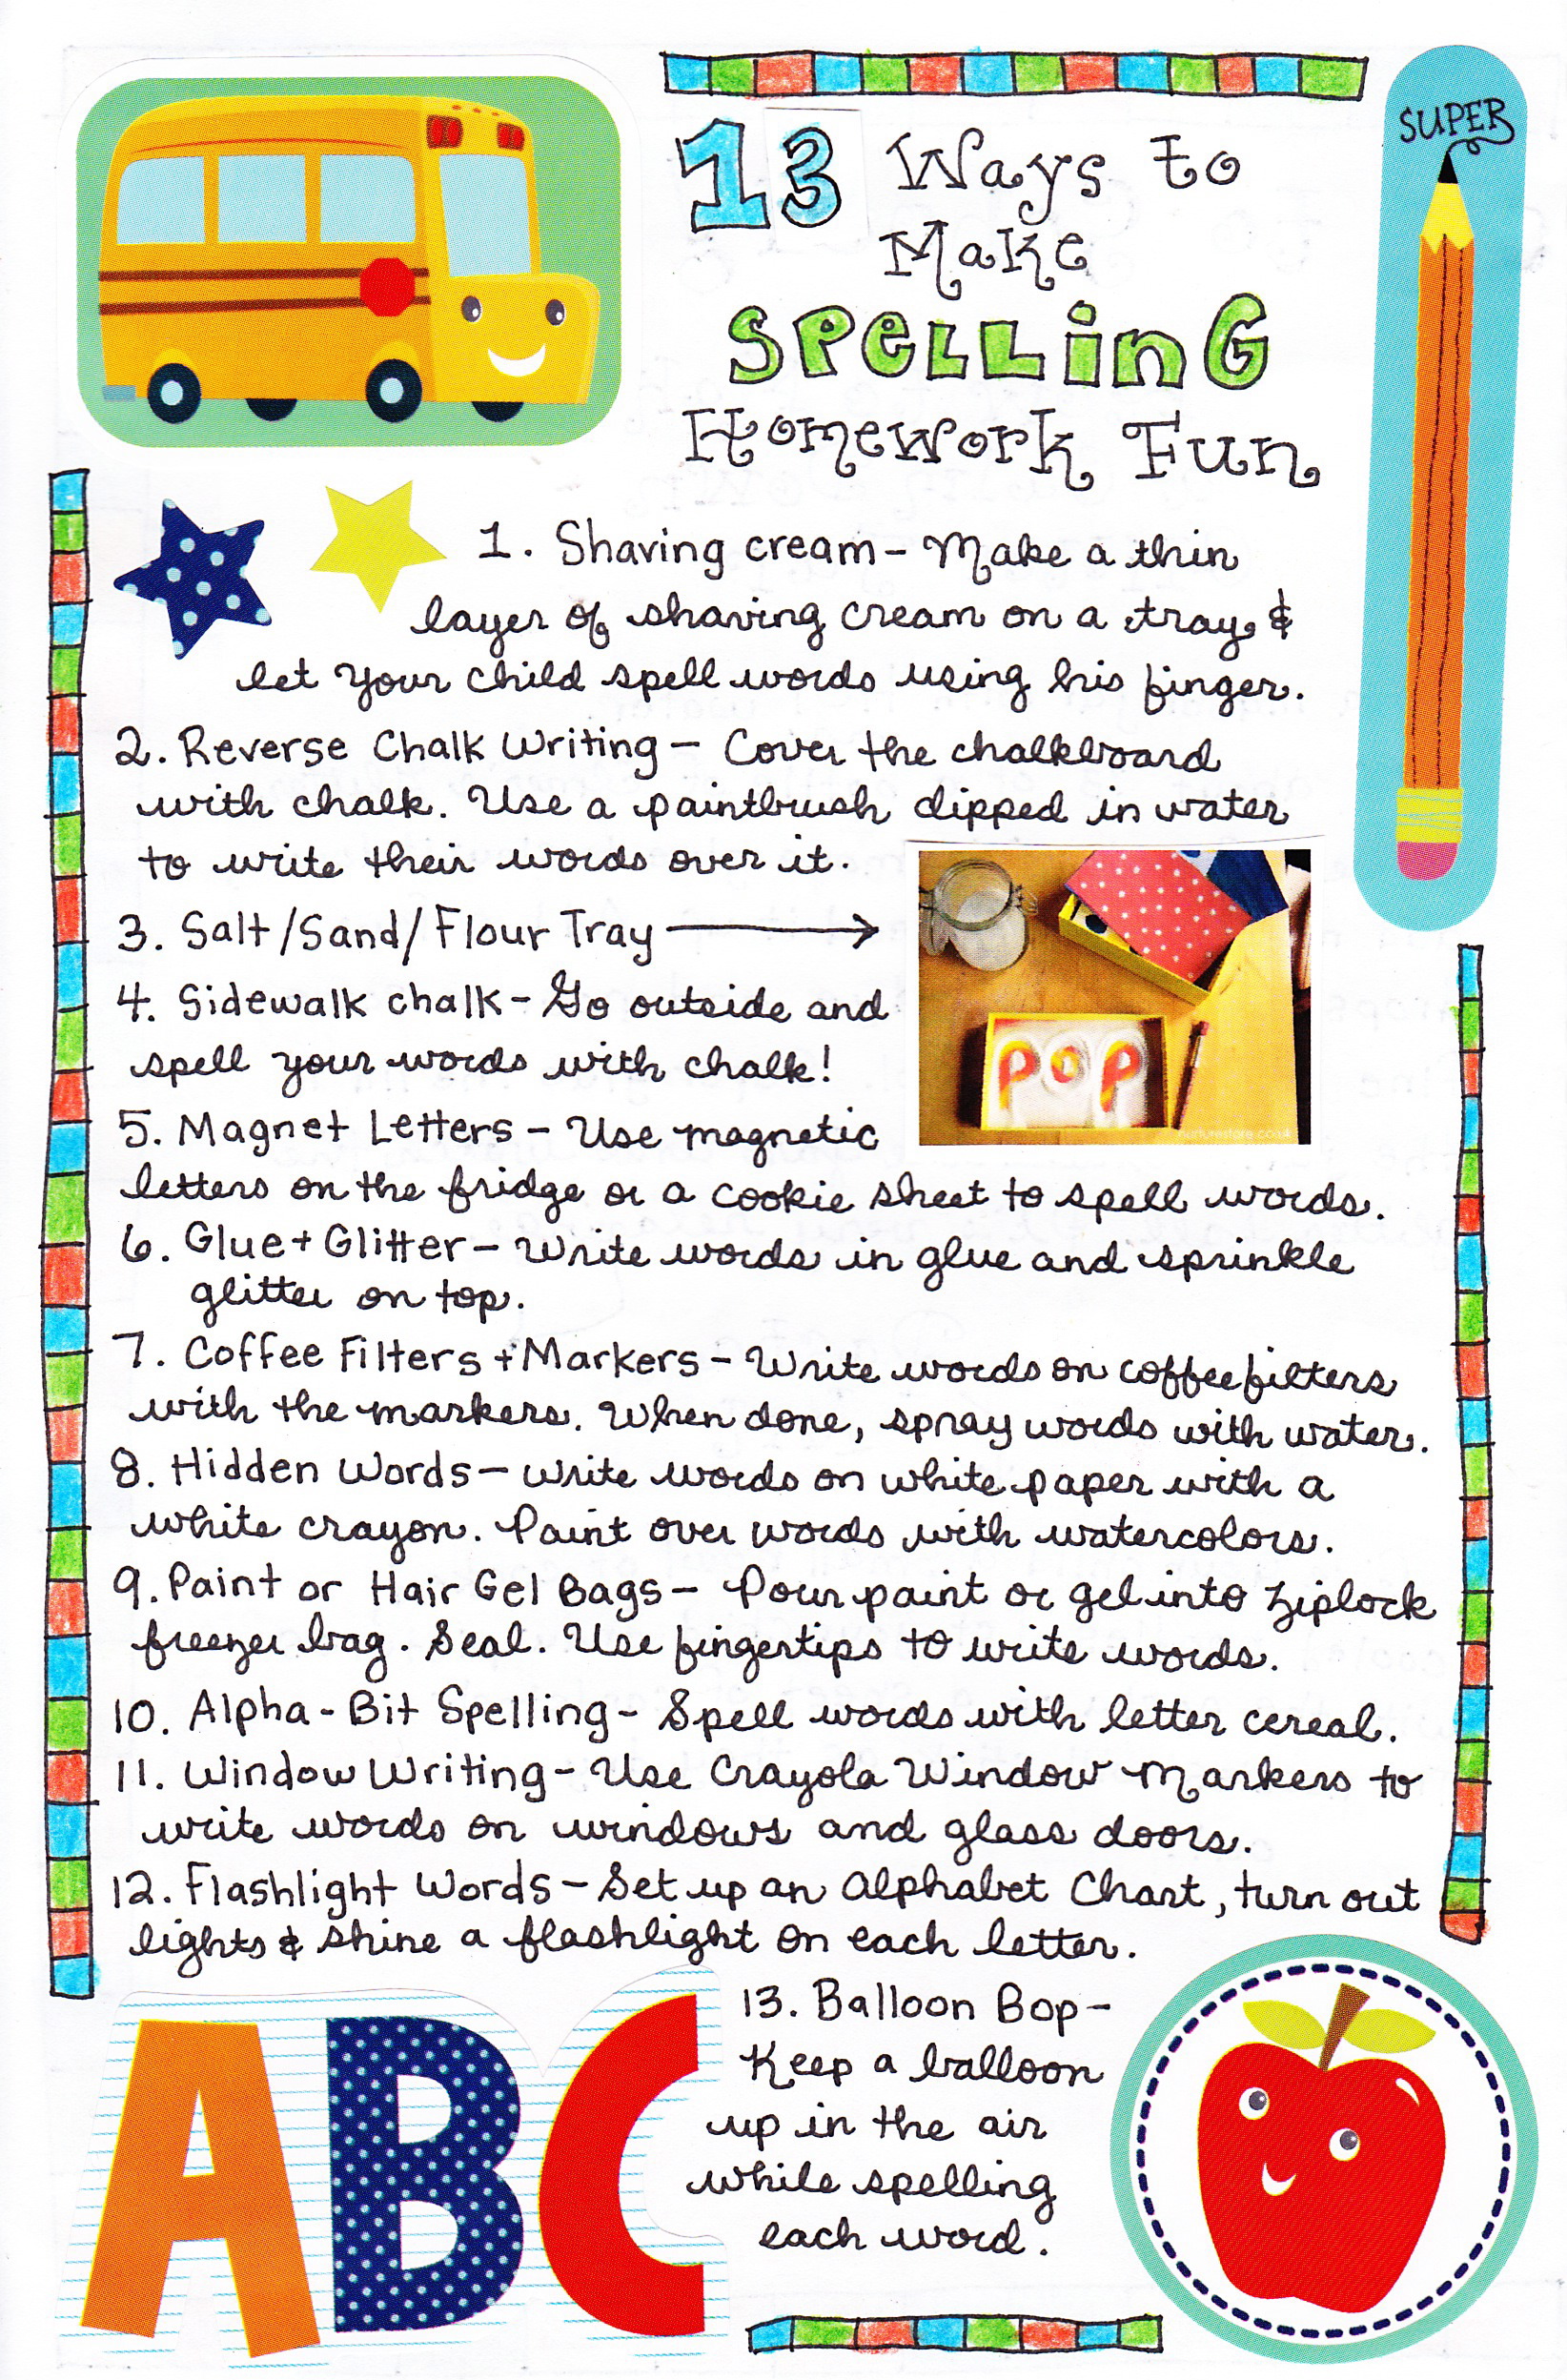 SUPER
13 Ways to
Make
SPELLING
Homework Fun
1. Shaving cream - Make a thin
layer of shaving cream on a tray &
let your child spell words using his finger.
2. Reverse Chalk Writing - Cover the chalkboard
with chalk. Use a paintbrush dipped in water
to write their words over it.
3. Salt/Sand/Flour Tray
4. Sidewalk chalk - Go outside and
spell your words with chalk!
POP
nurturestore.co.uk
5. Magnet Letters - Use magnetic
letters on the fridge or a cookie sheet to spell words.
6. Glue + Glitter - Write words in glue and sprinkle
glitter on top.
7. Coffee Filters + Markers - Write words on coffee filters
with the markers. When done, spray words with water.
8. Hidden Words - Write words on white paper with a
white crayon. Paint over words with watercolors.
9. Paint or Hair Gel Bags - Pour paint or gel into Ziplock
freezer bag. Seal. Use fingertips to write words.
10. Alpha-Bit Spelling - Spell words with letter cereal.
11. Window Writing - Use Crayola Window Markers to
write words on windows and glass doors.
12. Flashlight Words - Set up an Alphabet Chart, turn out
lights & shine a flashlight on each letter.
13. Balloon Bop -
Keep a balloon
up in the air
while spelling
each word.
ABC